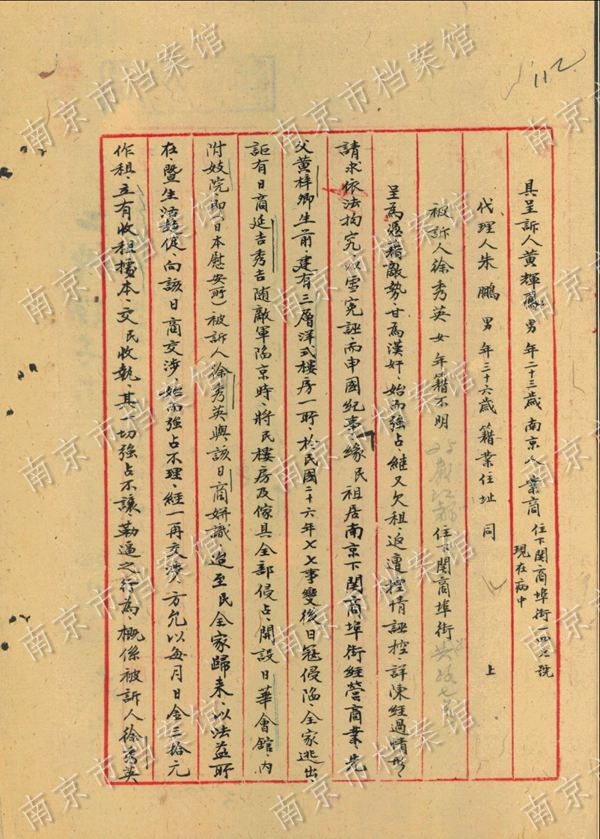 112
具呈訴人黃輝鳳 男 年二十三歲 南京人 業商 住下關商埠街一四七號 現在病中
代理人朱鵬 男 年三十六歲 籍業住址 同 上
被訴人徐秀英 女 年籍不明 住下關商埠街
呈為憑藉敵勢甘為漢奸、始而強占、繼又欠租追遭控情誣控、詳陳經過情形、
請求依法拘究、以雪冤誣、而申國紀事、緣民祖居南京下關商埠街經營商業、先
父黃梓卿生前、建有三層洋式樓房一所、於民國二十六年七七事變後日寇侵陷、全家逃出、
詎有日商延吉秀吉隨敵軍陷京時、將民樓房及傢具全部侵占、開設日華會館、內
附妓院、即(日本慰安所)被訴人徐秀英與該日商姘識、迨至民全家歸來、以法益所
在、暨生活所促、向該日商交涉、始而強占不理、經一再交涉、方允以每月日金三拾元
作租、立有收租摺本、交民收執、其一切強占不讓勒逼之行為、概係被訴人徐秀英
南京市档案馆